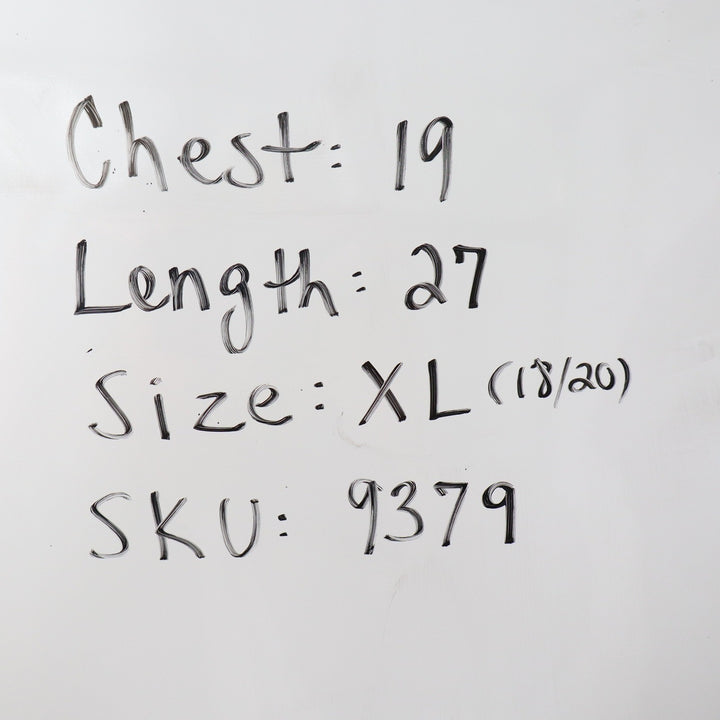 Chest: 19
Length: 27
Size: XL (18/20)
SKU: 9379